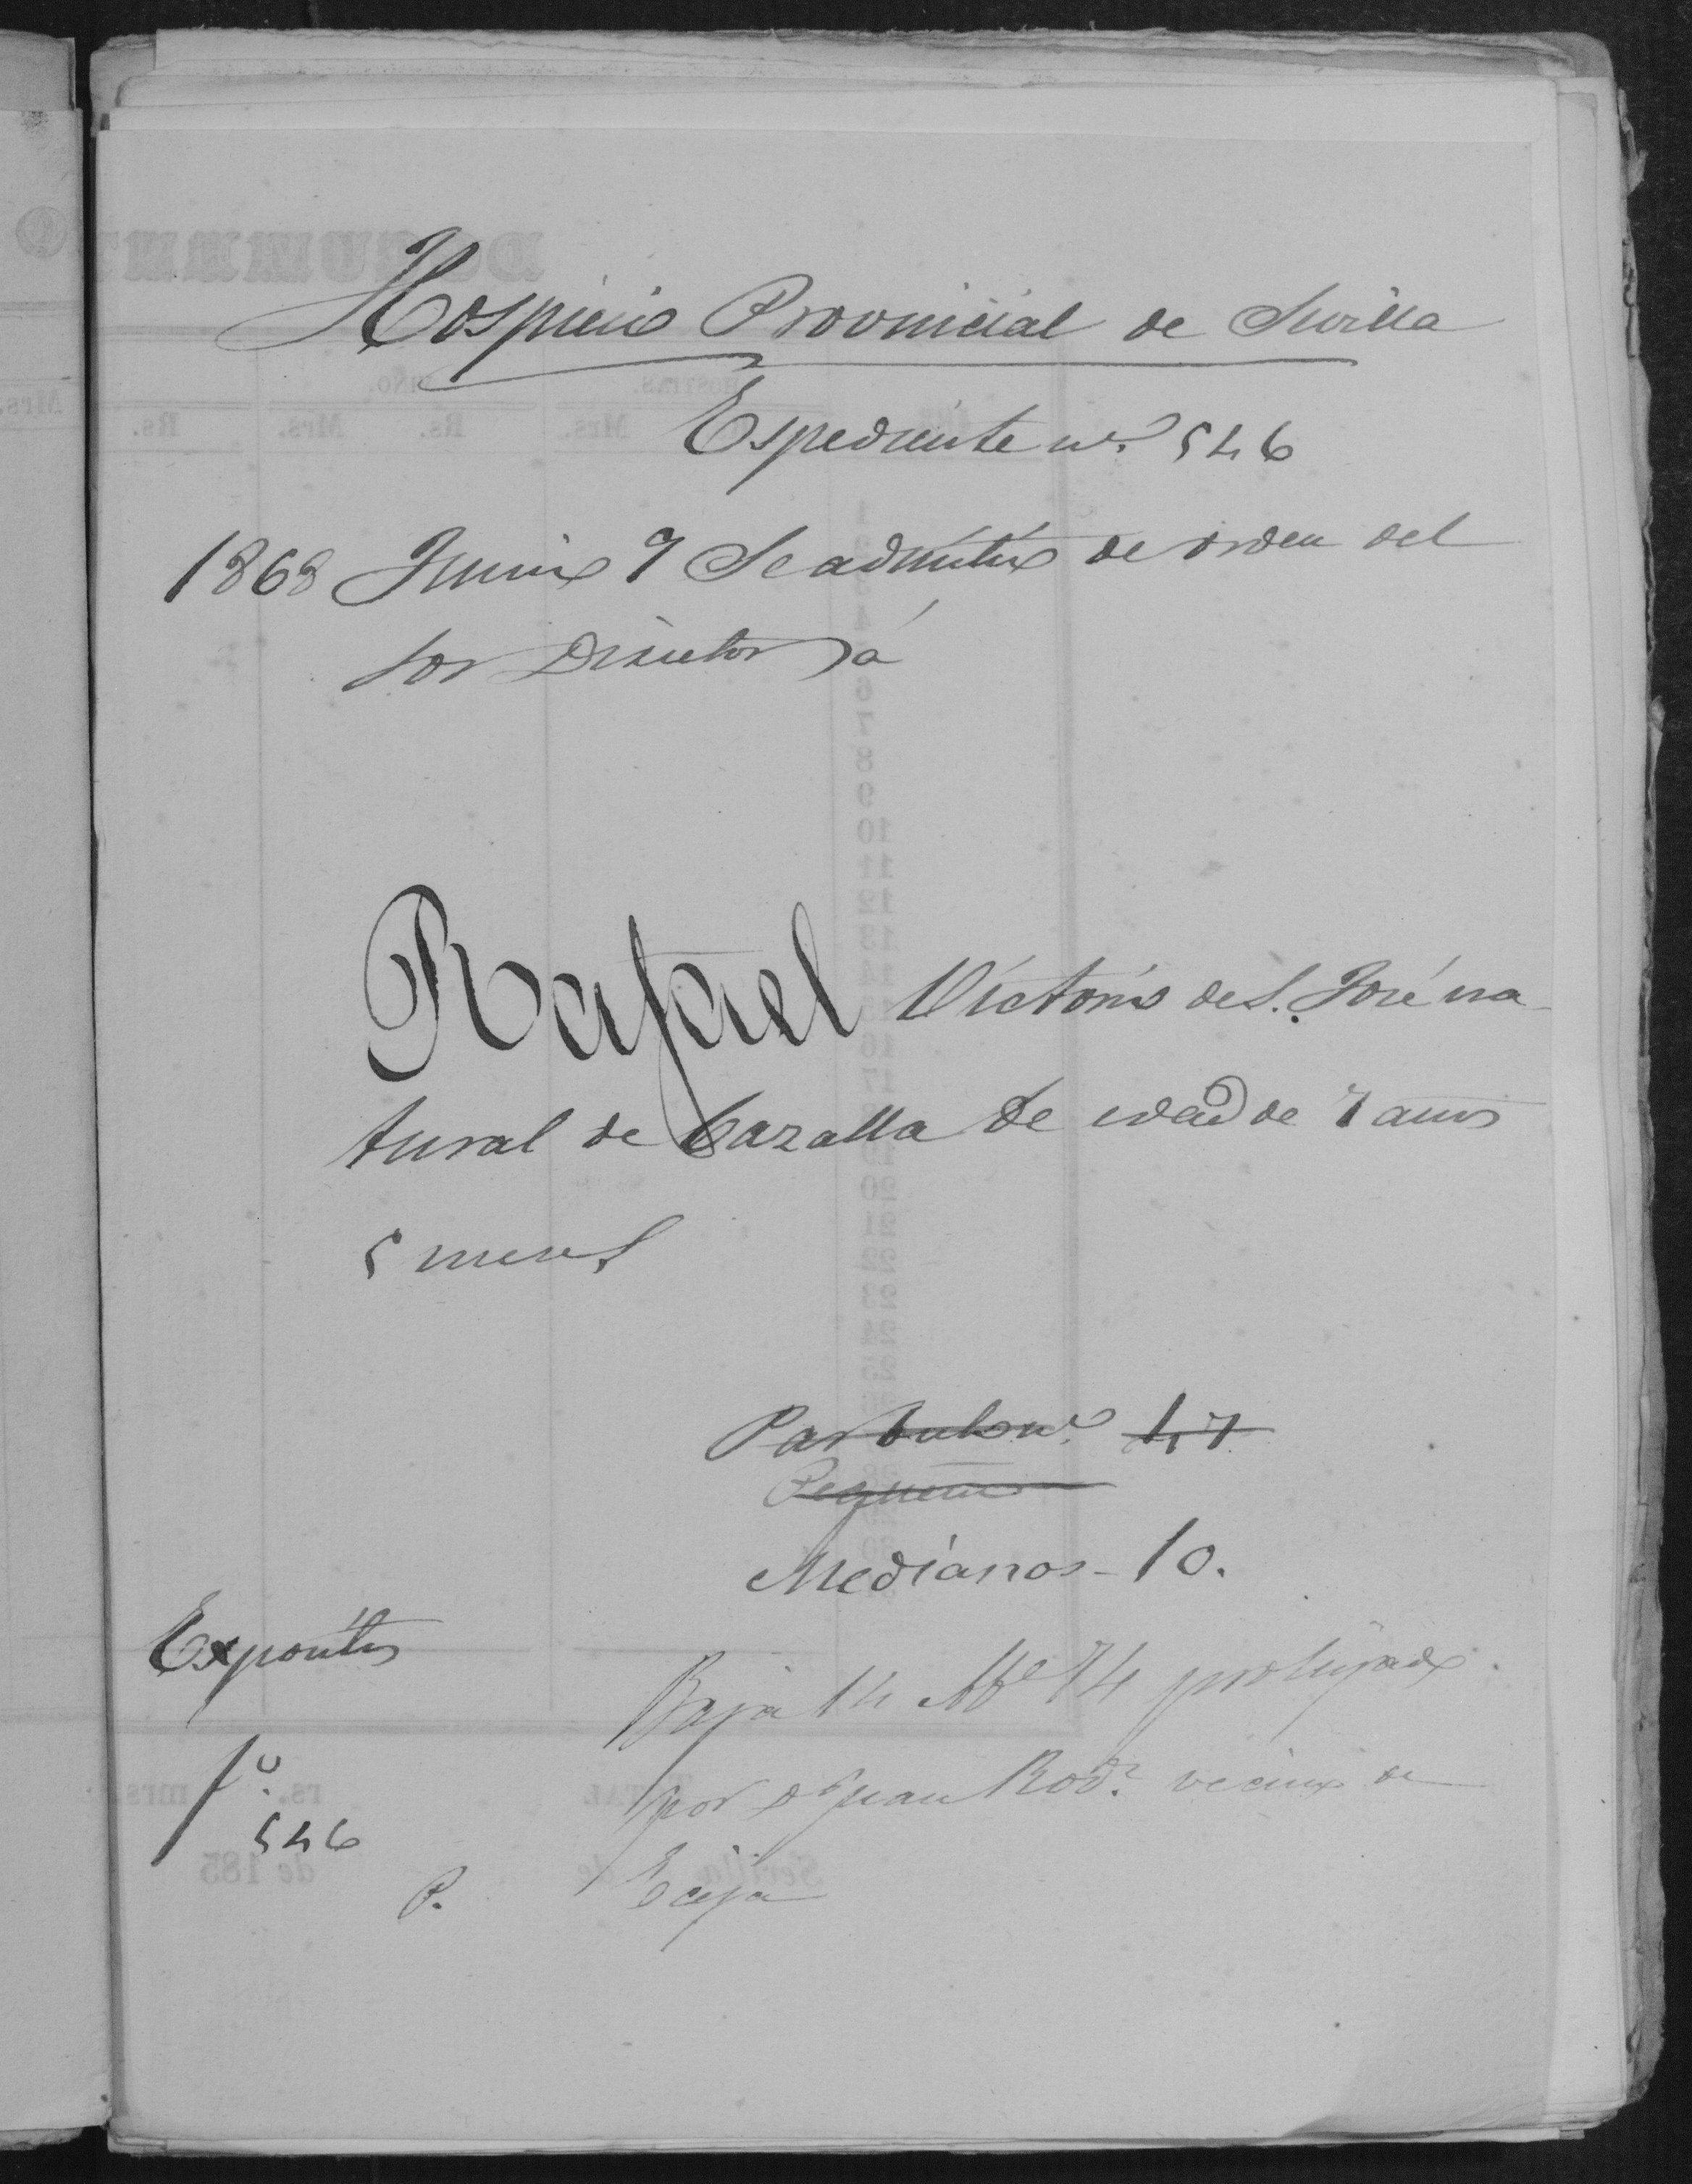 Hospicio Provincial de Sevilla
Espediente nº 546
1868 Junio 7 Se admitió de orden del
Sor Director á
Rafael Victorio de S. José na-
tural de Cazalla de edad de 7 años
5 meses
Parbulo nº 47
Pequeños
Medianos - 10.
Expósitos
Baja 14 74 prohijado
fº.
por Dn Juan Rodz vecino de
546
P.
Ecija